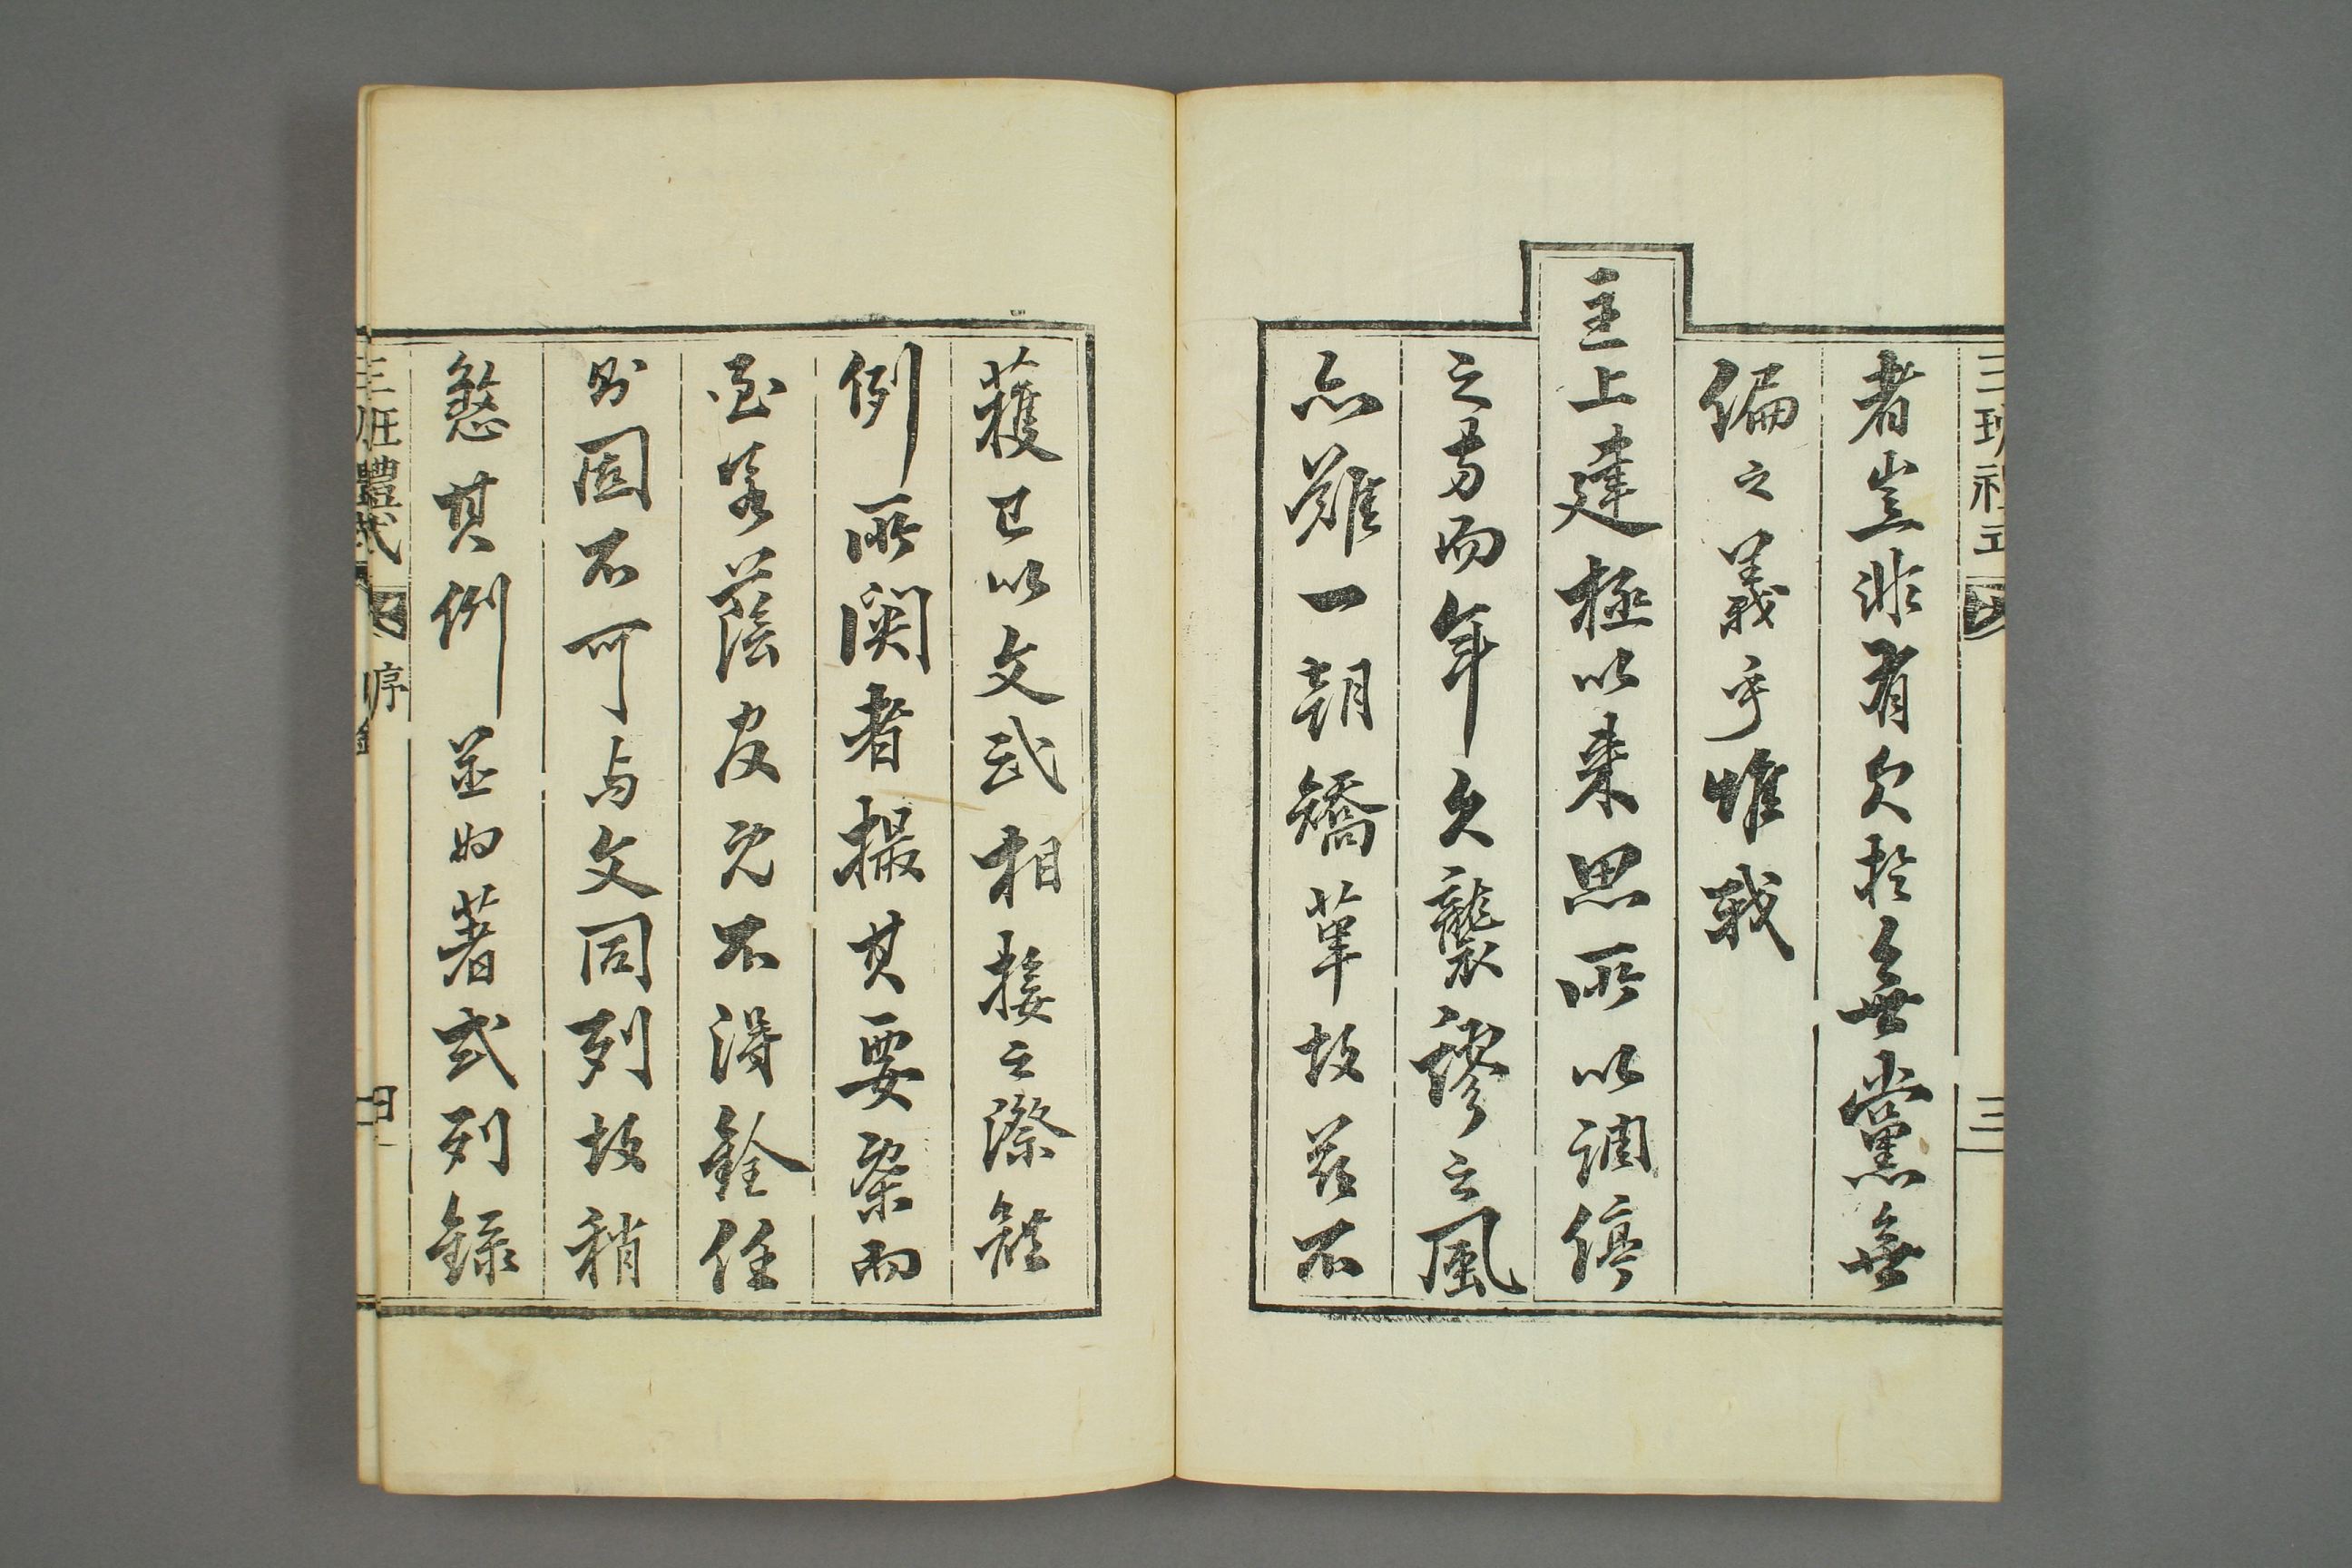 三班禮式
三
者豈非有欠於無黨無
偏之義乎惟我
主上建極以來思所以調停
之方而年久襲謬之風
亦難一朝矯革故玆不
獲已以文武相接之際體
例所關者撮其要槩而
至若蔭官既不得銓任
則固不可与文同列故稍
愍其例並如著式列錄
三班禮式
序
四